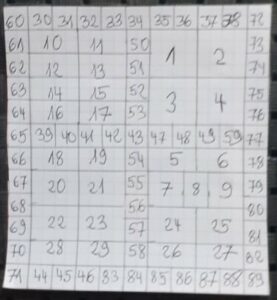 60 30 31 32 33 34 35 36 37 38 72
61 10 11 50 1 2 73
62 12 13 51 74
63 14 15 52 3 4 75
64 16 17 53 76
65 39 40 41 42 43 47 48 49 59 77
66 18 19 54 5 6 78
67 20 21 55 7 8 9 79
68 56 80
69 22 23 57 24 25 81
70 28 29 58 26 27 82
71 44 45 46 83 84 85 86 87 88 89